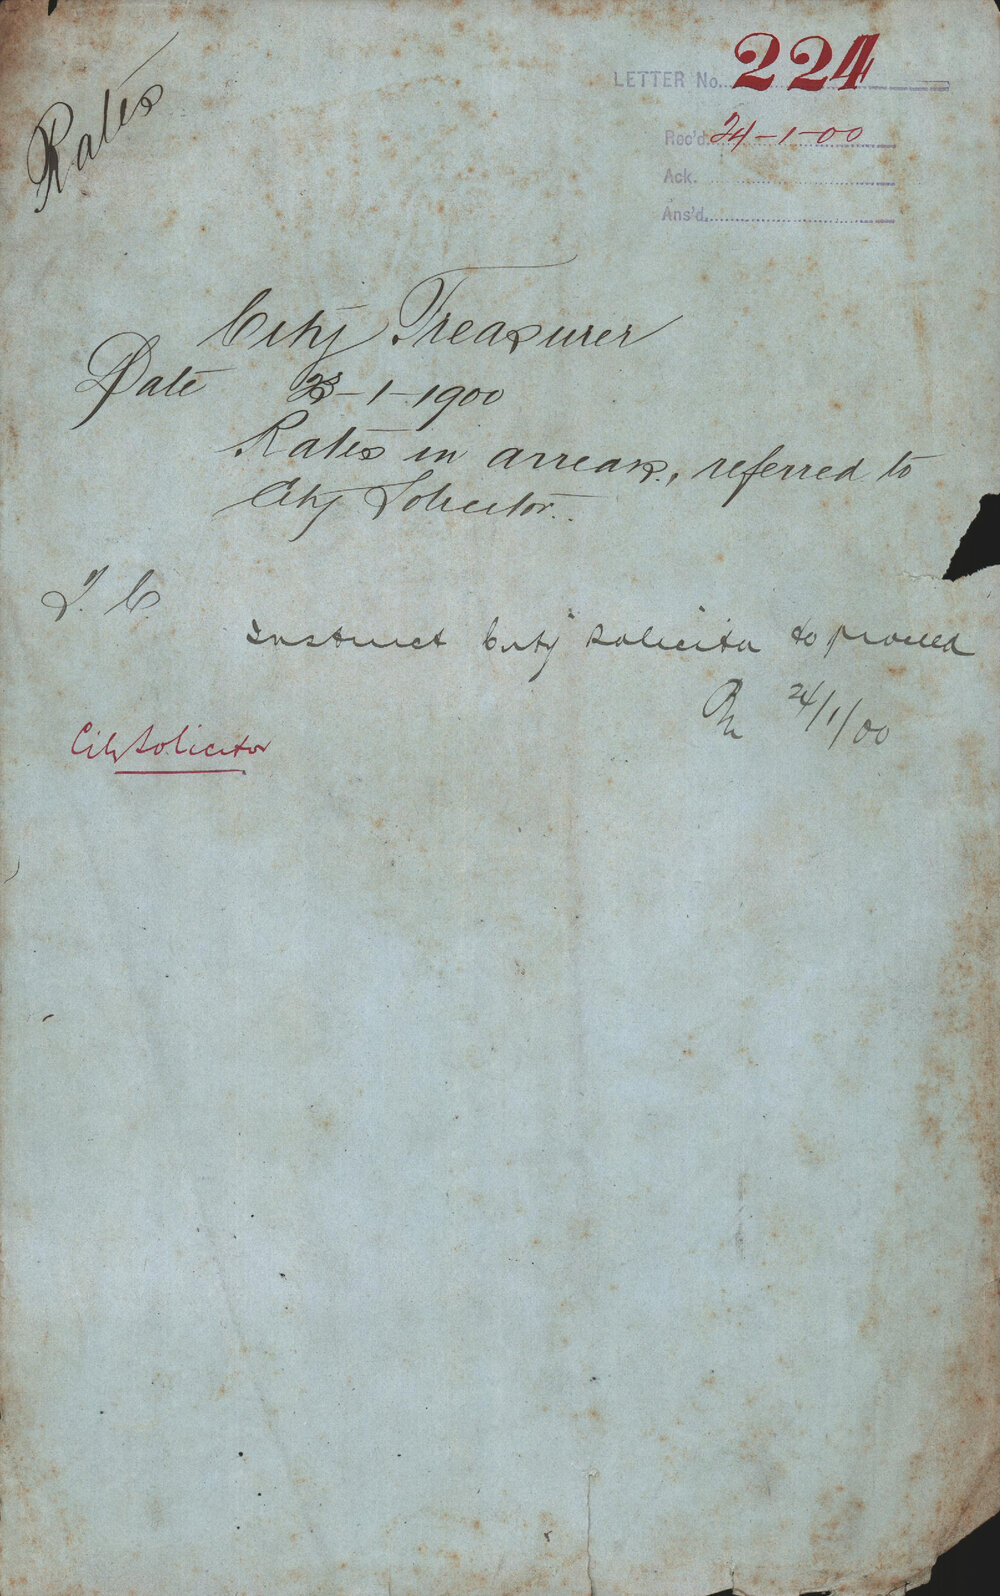 Rates
LETTER No. 224
Rec'd. 24-1-00
Ack.
Ans'd.
City Treasurer
Date 23-1-1900
Rates in arrears, referred to
City Solicitor.
T. C.
Instruct City Solicitor to proceed
24/1/00
City Solicitor